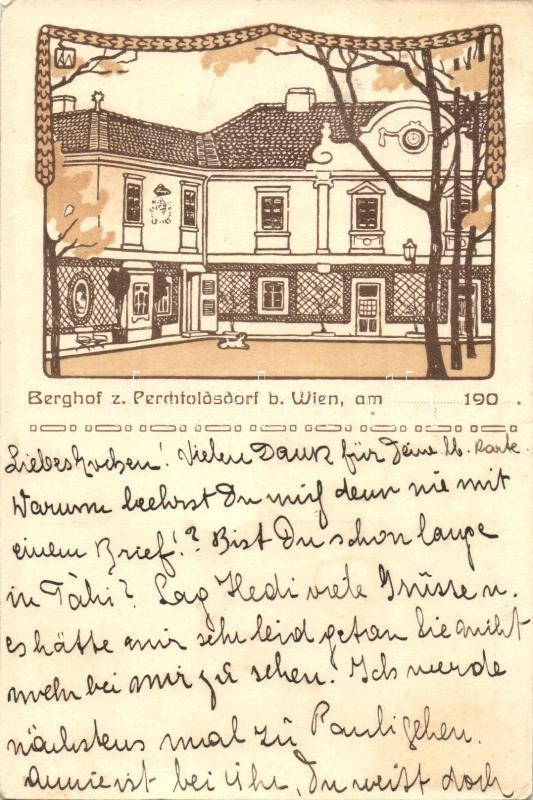 Berghof z. Perchtoldsdorf b. Wien, am 190 .
Liebes! Vielen Dank für Deine lb. Karte.
Warum beehrst Du mich denn nie mit
einem Brief!? Bist Du schon lange
in Tahi? Sag Hedi viele Grüsse u.
es hätte mir sehr leid getan Sie nicht
mehr bei mir zu sehen. Ich werde
nächstens mal zu Pauli gehen.
Annie ist bei ihr, Du weißt doch